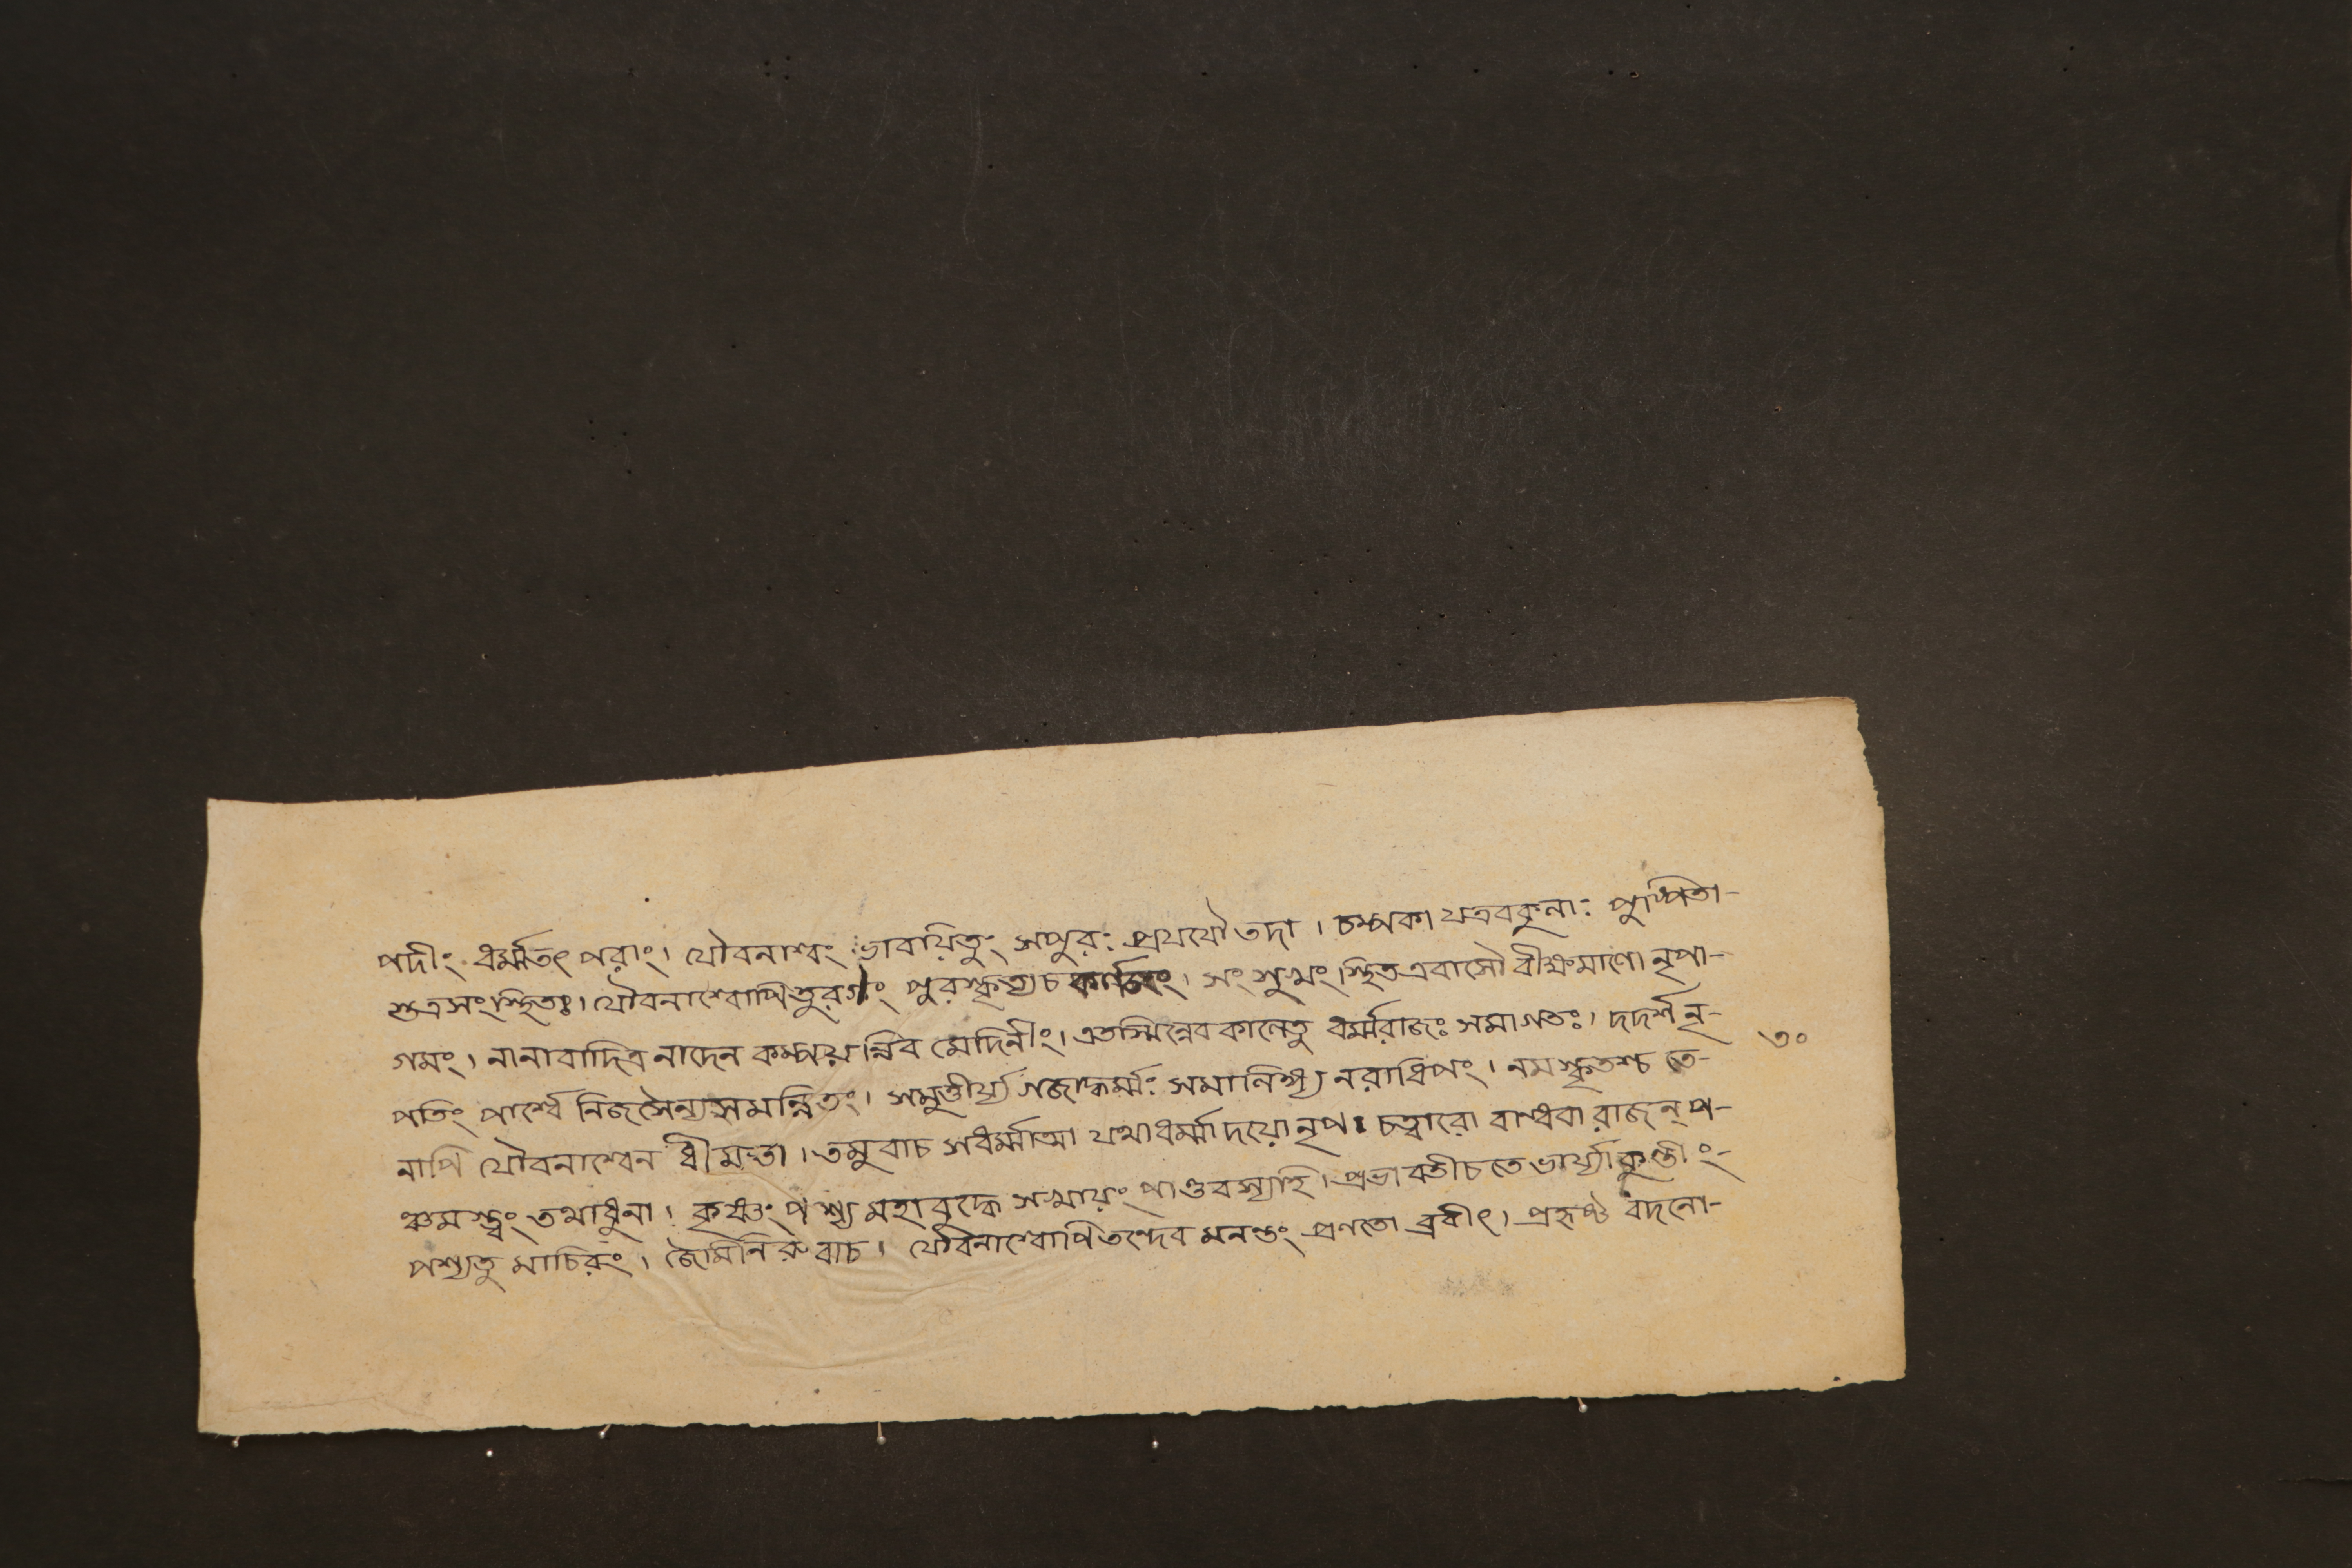 পদীং ধর্ম্মতৎ পরাং। যৌবনাশ্বং ভাবয়িতুং সপুরঃ প্রযযৌ তদা । চম্পকা যত্রবকুলাঃ পুষ্পিতা-
শুত্রসংস্থিতঃ। যৌবনাশ্বোপিতুরগং পুরস্কৃত্যচ । সংশুম্রং স্থিতএবাসৌ বীক্ষমাণো নৃপা-
গমং। নানাবাদিত্র নাদেন কম্পয়ন্নিব মেদিনীং। এতস্মিন্নেব কালেতু ধর্ম্মরাজঃ সমাগতঃ। দদর্শ নৃ-
পতিং পার্শ্বে নিজসৈন্যসমন্নিতং। সমুত্তীর্য্য গজাদ্ধর্ম্মঃ সমালিঙ্গ্য নরাধিপং। নমস্কৃতশ্চ তে-
নাপি যৌবনাশ্বেন ধীমতা। তমুবাচ সধর্ম্মাত্মা যথাধর্ম্মাদয়োনৃপ। চত্বারো বান্ধবা রাজন্ প-
ঞ্চমস্ত্বং তথাধুনা। কৃষ্ণং পশ্য মহাবুদ্ধে সহায়ং পাণ্ডবস্যহি। প্রভাবতীচতে ভার্য্যা কুন্তীং-
পশ্যতু মাচিরং। জৈমিনিরুবাচ। যৌবনাশ্বোপিতন্দেব মনন্তং প্রণতো ব্রবীৎ। প্রহৃষ্ট বদনো-
৩০